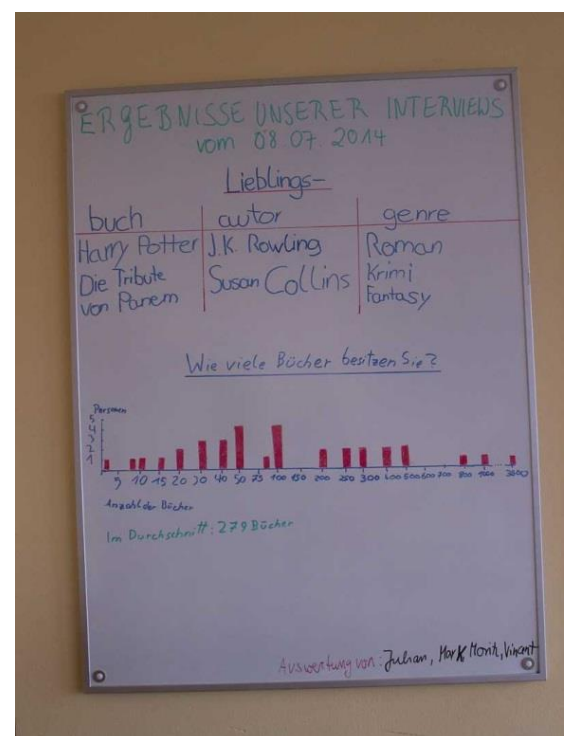 ERGEBNISSE UNSERER INTERVIEWS
vom 08.07.2014
Lieblings-
buch autor genre
Harry Potter J.K. Rowling Roman
Die Tribute Susan Collins Krimi
von Panem Fantasy
Wie viele Bücher besitzen Sie?
Personen
5
4
3
2
1
5 10 15 20 30 40 50 75 100 150 200 250 300 400 500 600 700 800 1000 3000
Anzahl der Bücher
Im Durchschnitt: 279 Bücher
Auswertung von: Julian, Mark Moritz, Vincent